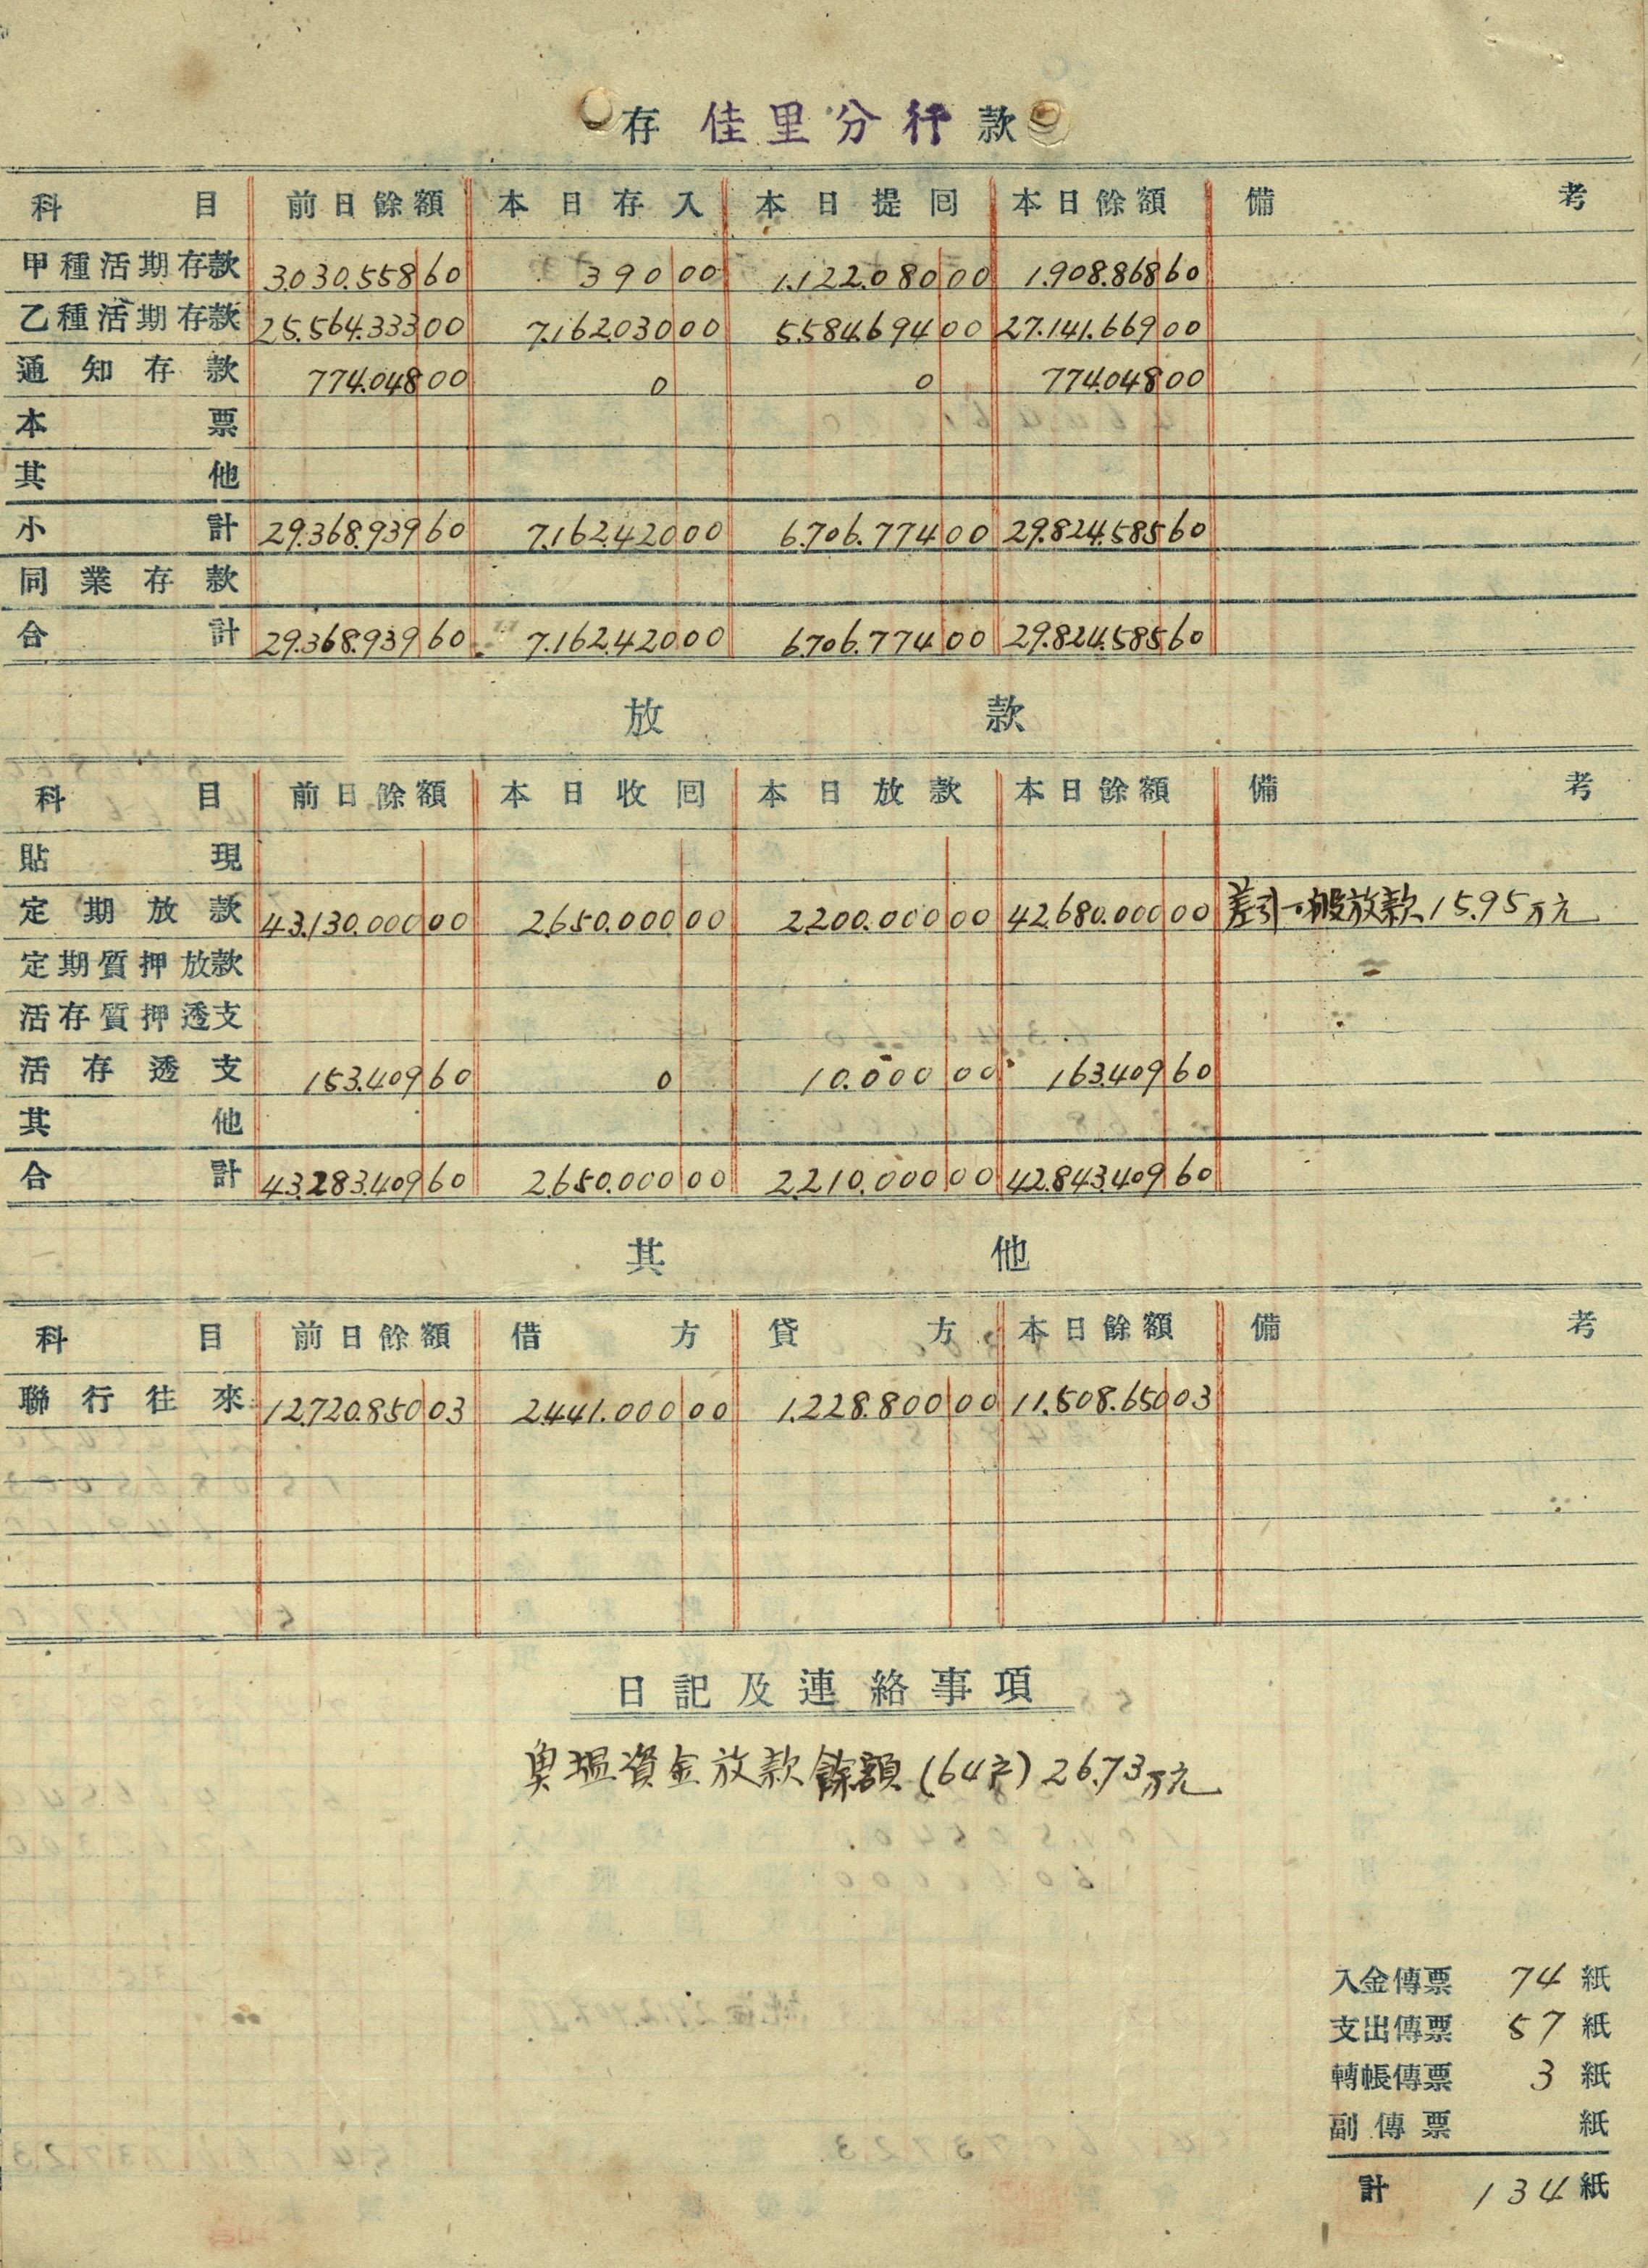 存 佳里分行 款
科目 前日餘額 本日存入 本日提囘 本日餘額 備考
甲種活期存款 3.030.558 60 390 00 1.122.080 00 1.908.868 60
乙種活期存款 25.564.333 00 7.162.030 00 5.584.694 00 27.141.669 00
通知存款 774.048 00 0 0 774.048 00
本票
其他
小計 29.368.939 60 7.162.420 00 6.706.774 00 29.824.585 60
同業存款
合計 29.368.939 60 7.162.420 00 6.706.774 00 29.824.585 60
放款
科目 前日餘額 本日收囘 本日放款 本日餘額 備考
貼現
定期放款 43.130.000 00 2.650.000 00 2.200.000 00 42.680.000 00 差引一般放款 15.95万元
定期質押放款
活存質押透支
活存透支 153.409 60 0 10.000 00 163.409 60
其他
合計 43.283.409 60 2.650.000 00 2.210.000 00 42.843.409 60
其他
科目 前日餘額 借方 貸方 本日餘額 備考
聯行往來 12.720.850 03 2.441.000 00 1.228.800 00 11.508.650 03
日記及連絡事項
資金放款餘額(64字) 26.73万元
入金傳票 74 紙
支出傳票 57 紙
轉帳傳票 3 紙
副傳票 紙
計 134 紙